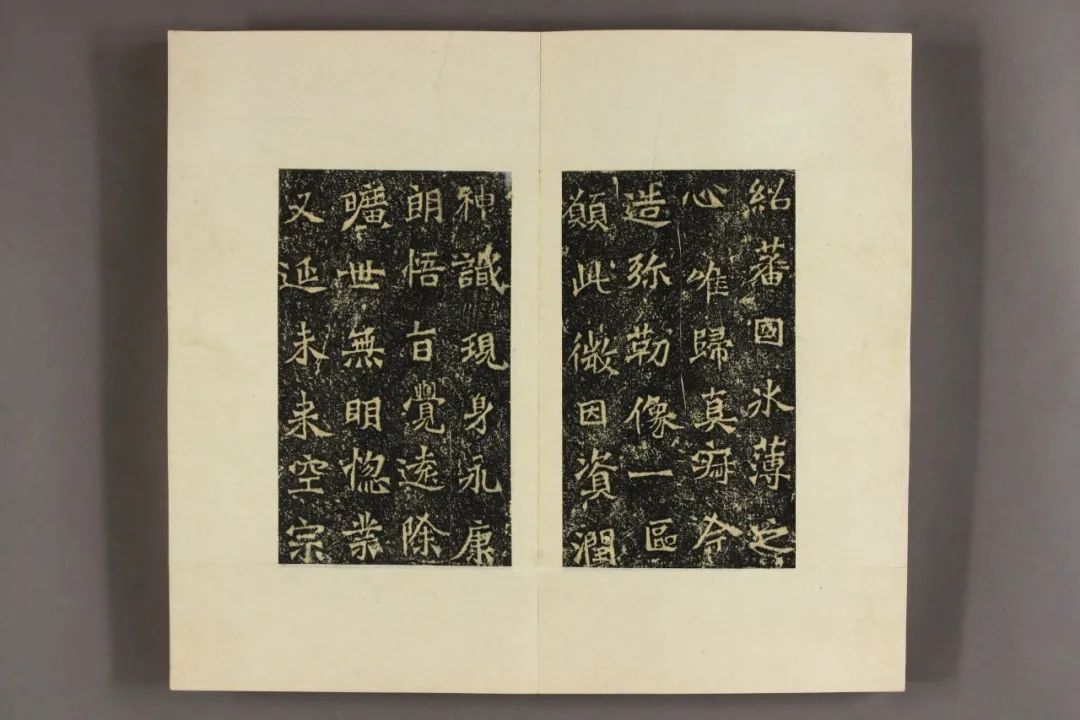 紹藩國冰薄之
心唯歸真寂今
造弥勒像一區
願此微因資潤
神識現身永康
朗悟旨覺遠除
曠世無明惚業
又延未来空宗